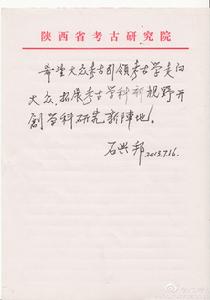 陕西省考古研究院
希望大众考古引领考古学走向
大众，拓展考古学科新视野开
创学科研究新阵地！
石兴邦 2013.7.16.